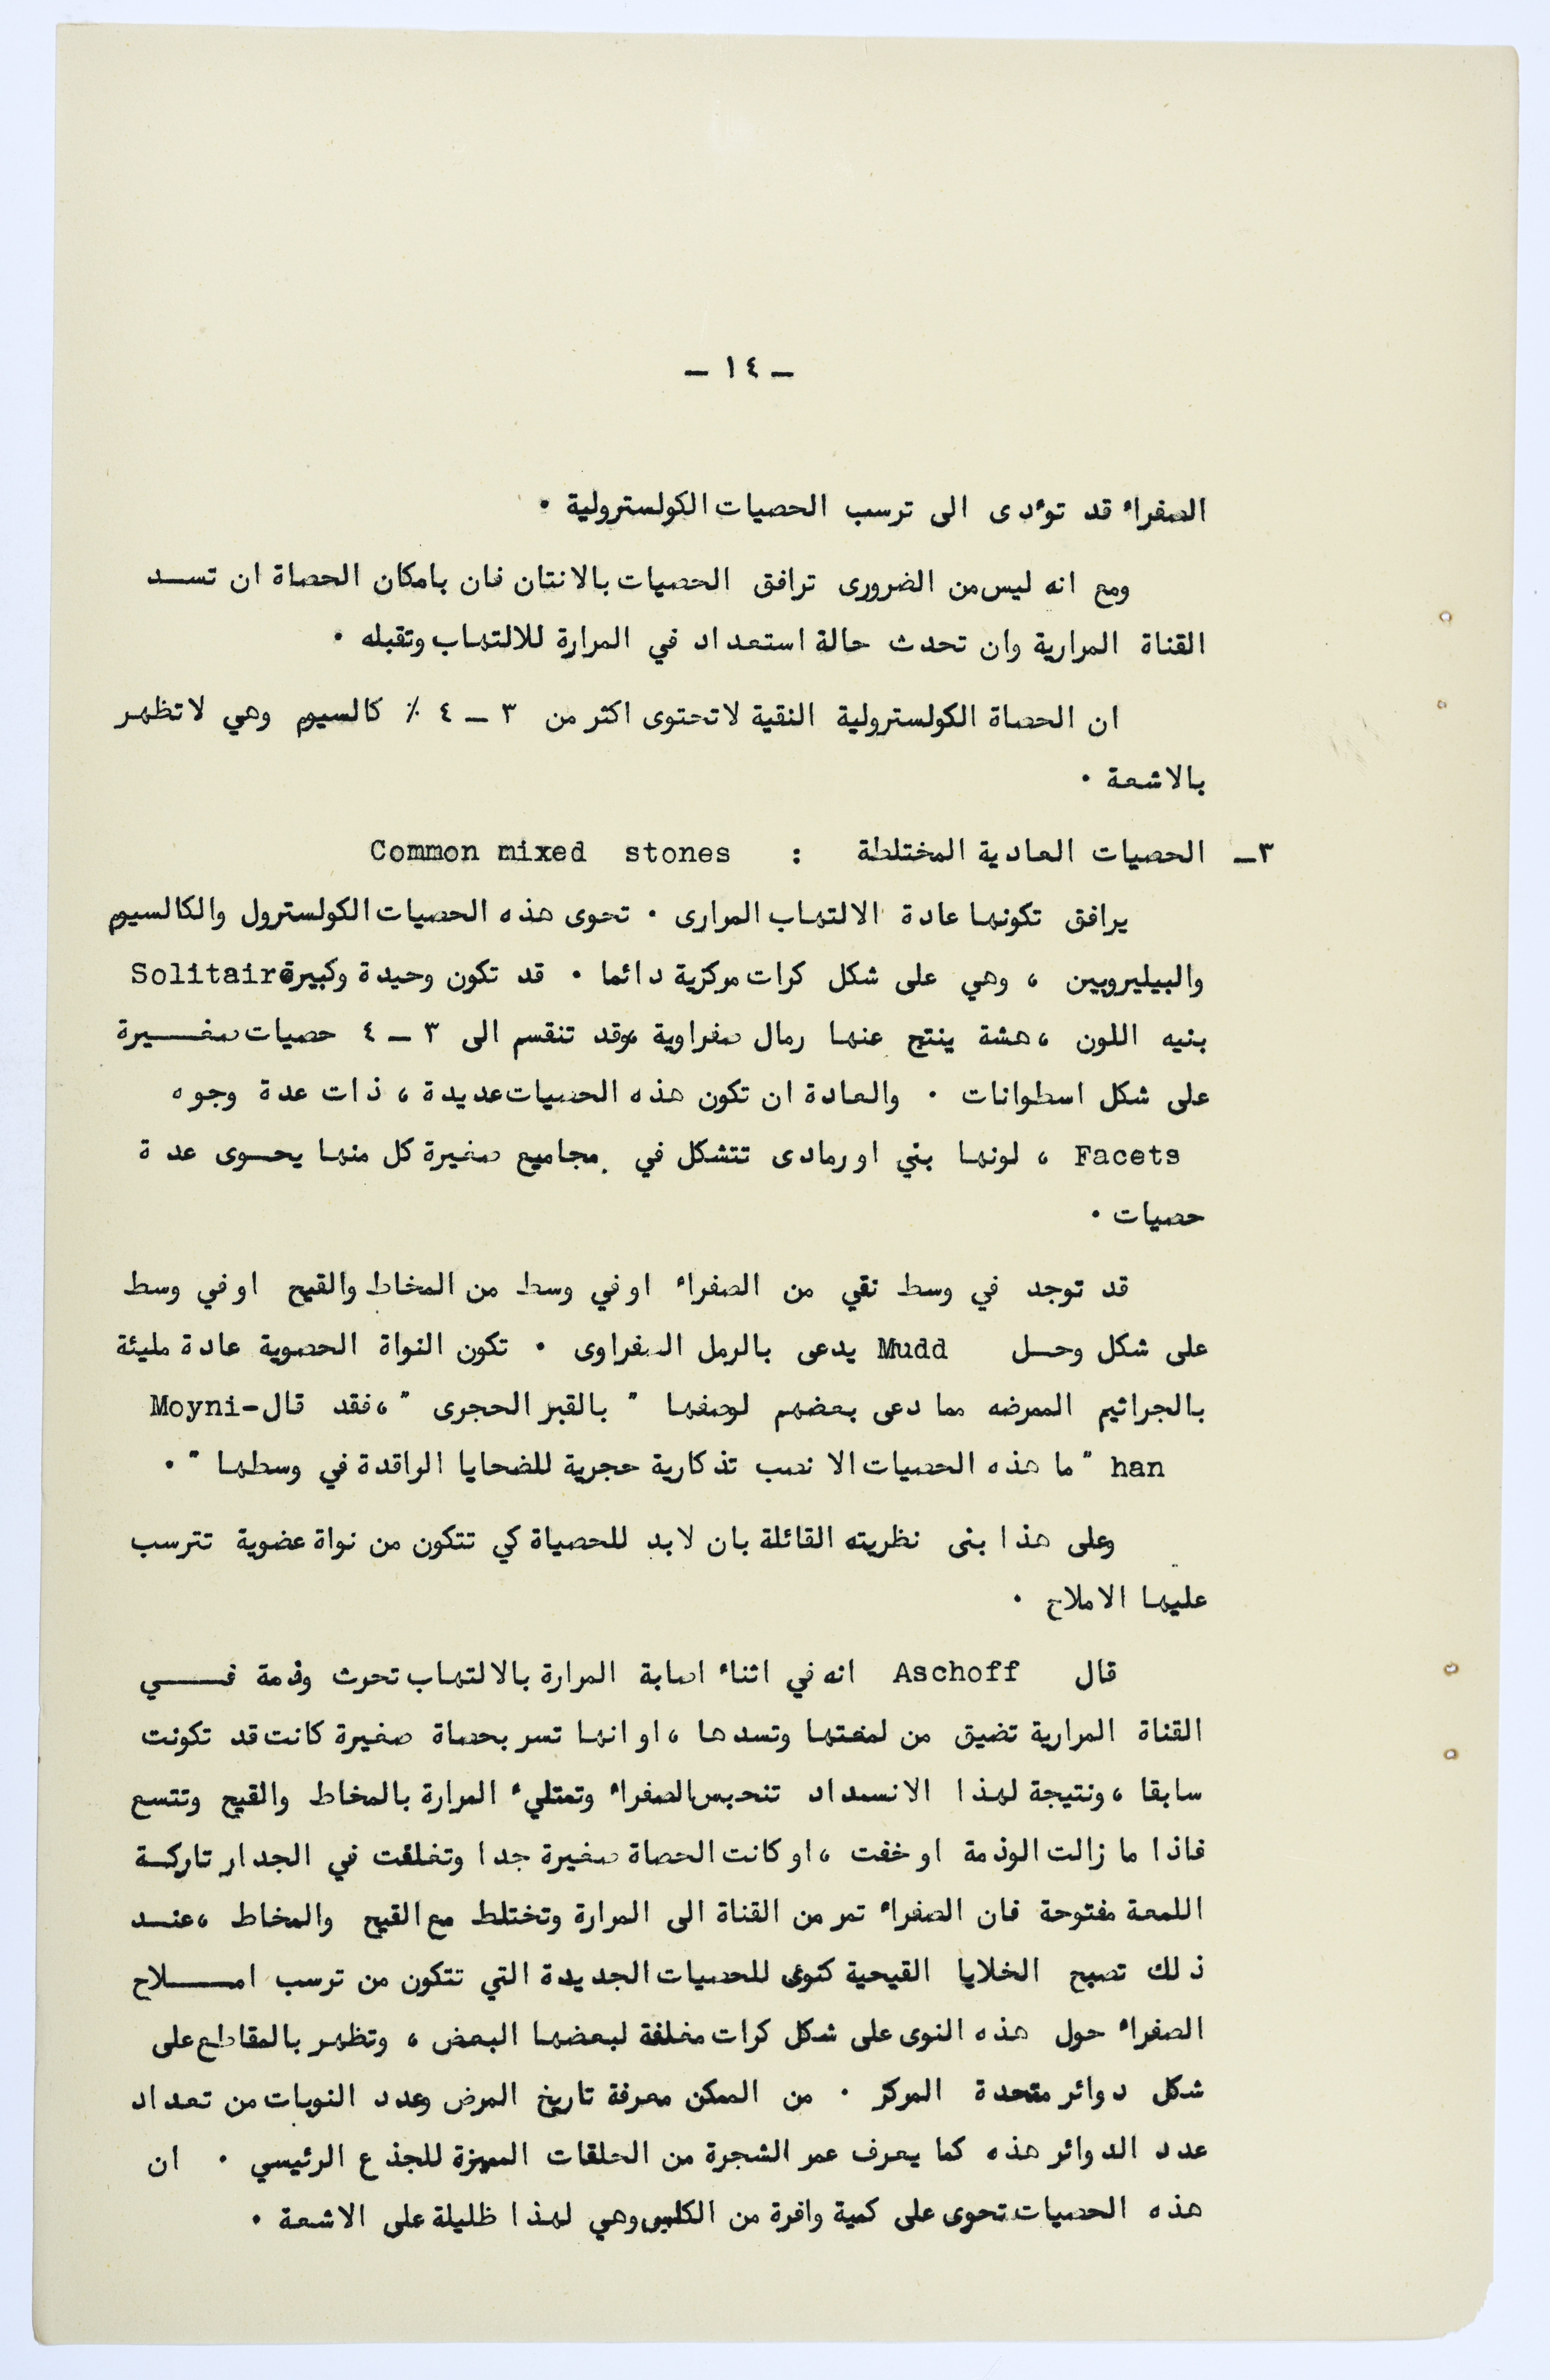 ـ ١٤ ـ
الصفراء قد تؤدى الى ترسب الحصيات الكولسترولية .
ومع انه ليس من الضرورى ترافق الحصيات بالانتان فان بامكان الحصاة ان تسد
القناة المرارية وان تحدث حالة استعداد في المرارة للالتهاب وتقبله .
ان الحصاة الكولسترولية النقية لاتحتوى اكثر من ٣ ـ ٤ ٪ كالسيوم وهي لاتظهر
بالاشعة .
٣ـ الحصيات العادية المختلطة : Common mixed stones
يرافق تكونها عادة الالتهاب المرارى . تحوى هذه الحصيات الكولسترول والكالسيوم
والبيليروبين ، وهي على شكل كرات مركزية دائما . قد تكون وحيدة وكبيرة Solitaire
بنيه اللون ، هشة ينتج عنها رمال صفراوية ،وقد تنقسم الى ٣ ـ ٤ حصيات صغيرة
على شكل اسطوانات . والعادة ان تكون هذه الحصيات عديدة ، ذات عدة وجوه
Facets ، لونها بني او رمادى تتشكل في مجاميع صغيرة كل منها يحوى عدة
حصيات .
قد توجد في وسط نقي من الصفراء او في وسط من المخاط والقيح او في وسط
على شكل وحل Mudd يدعى بالرمل الصفراوى . تكون النواة الحصوية عادة مليئة
بالجراثيم الممرضه مما دعى بعضهم لوصفها " بالقبر الحجرى " ، فقد قال Moyni-
han " ما هذه الحصيات الا نصب تذكارية حجرية للضحايا الراقدة في وسطها " .
وعلى هذا بنى نظريته القائلة بان لابد للحصياة كي تتكون من نواة عضوية تترسب
عليها الاملاح .
قال Aschoff انه في اثناء اصابة المرارة بالالتهاب تحوث وذمة في
القناة المرارية تضيق من لمعتها وتسدها ، او انها تسر بحصاة صغيرة كانت قد تكونت
سابقا ، ونتيجة لهذا الانسداد تنحبس الصفراء وتمتليء المرارة بالمخاط والقيح وتتسع
فاذا ما زالت الوذمة او خفت ، او كانت الحصاة صغيرة جدا وتغلقت في الجدار تاركة
اللمعة مفتوحة فان الصفراء تمر من القناة الى المرارة وتختلط مع القيح والمخاط ، عند
ذلك تصبح الخلايا القيحية كنوى للحصيات الجديدة التي تتكون من ترسب املاح
الصفراء حول هذه النوى على شكل كرات مغلفة لبعضها البعض ، وتظهر بالمقاطع على
شكل دوائر متحدة المركز . من الممكن معرفة تاريخ المرض وعدد النوبات من تعداد
عدد الدوائر هذه كما يعرف عمر الشجرة من الحلقات المميزة للجذع الرئيسي . ان
هذه الحصيات تحوى على كمية وافرة من الكلس وهي لهذا ظليلة على الاشعة .